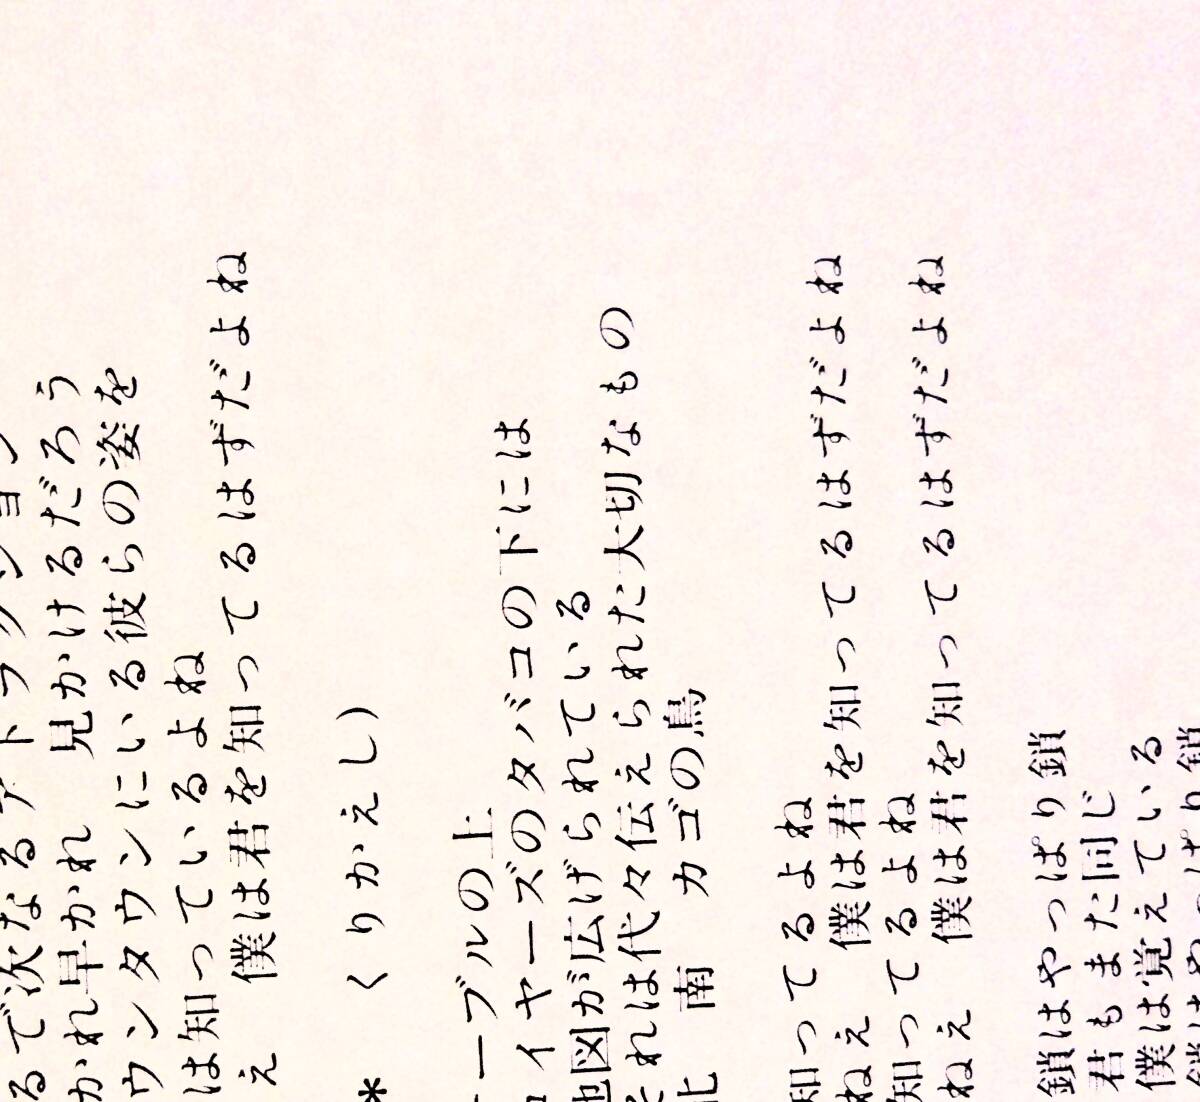 るで次なるアトラクション
かれ早かれ　見かけるだろう
ウンタウンにいる彼らの姿を
は知っているよね
え　僕は君を知ってるはずだよね
＊　くりかえし）
ーブルの上
イヤーズのタバコの下には
地図が広げられている
それは代々伝えられた大切なもの
北　南　カゴの鳥
知ってるよね
ねえ　僕は君を知ってるはずだよね
知ってるよね
ねえ　僕は君を知ってるはずだよね
鎖はやっぱり鎖
君もまた同じ
僕は覚えている
鎖はやっぱり鎖